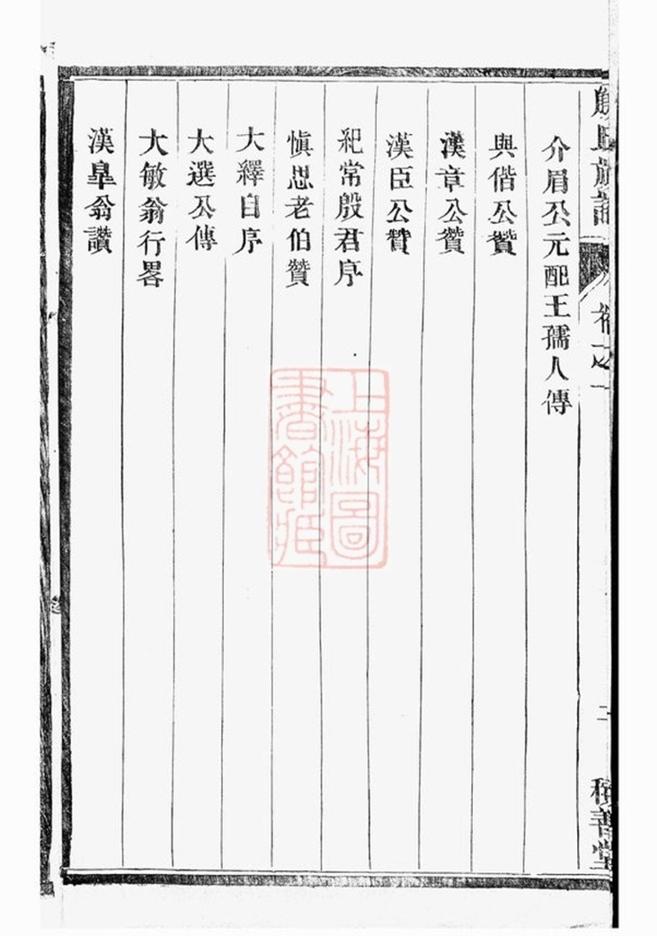 殷氏族譜
卷之一
二
積善堂
介眉公元配王孺人傳
與偕公贊
漢章公贊
漢臣公贊
紀常殷君序
愼思老伯贊
大釋自序
大選公傳
大敏翁行畧
漢臯翁讚
上海圖
書館藏